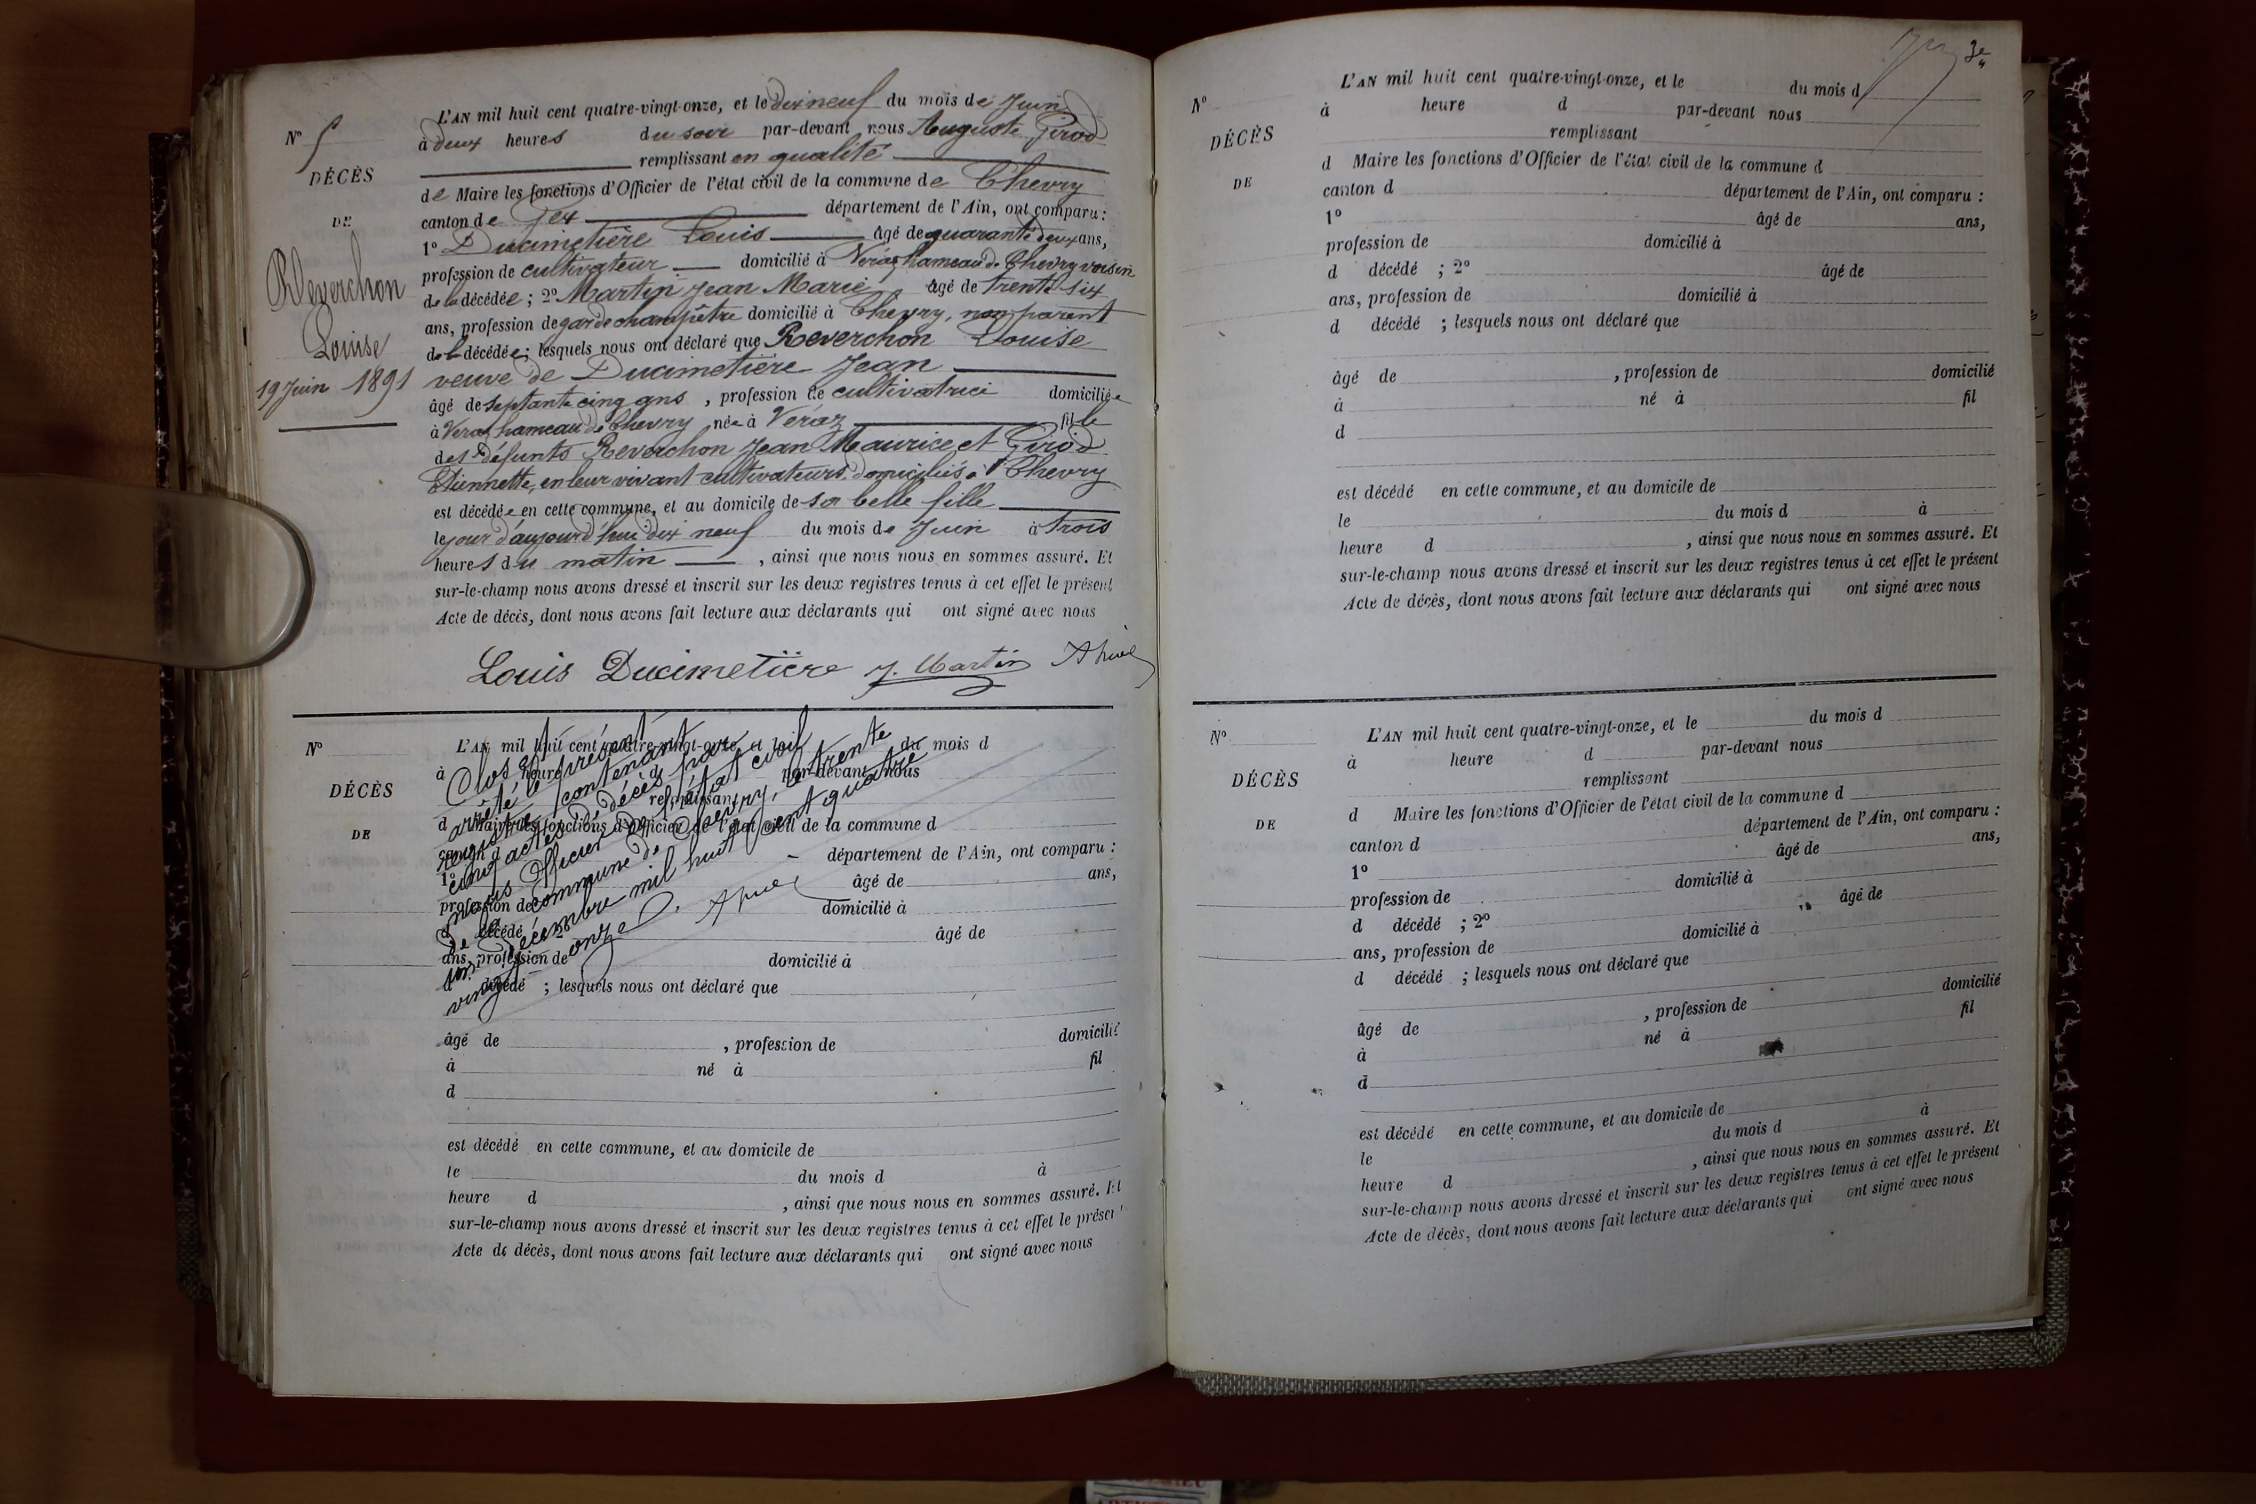 N° 5
DÉCÈS
DE
Reverchon
Louise
19 Juin 1891
L'AN mil huit cent quatre-vingt-onze, et le dix neuf du mois de Juin
à deux heures du soir par-devant nous Auguste Girod
remplissant en qualité
de Maire les fonctions d'Officier de l'état civil de la commune de Chevry
canton de Gex département de l'Ain, ont comparu :
1° Ducimetière Louis âgé de quarante deux ans,
profession de cultivateur domicilié à Véraz hameau de Chevry voisin
de la décédée ; 2° Martin Jean Marie âgé de trente six
ans, profession de garde champêtre domicilié à Chevry, non parent
de la décédée ; lesquels nous ont déclaré que Reverchon Louise
veuve de Ducimetière Jean
âgé de septante cinq ans , profession de cultivatrice domiciliée
à Véraz hameau de Chevry née à Véraz fille
des défunts Reverchon Jean Maurice et Girod
Etiennette, en leur vivant cultivateurs domiciliés à Chevry
est décédée en cette commune, et au domicile de sa belle fille
le jour d'aujourd'hui dix neuf du mois de Juin à trois
heures du matin , ainsi que nous nous en sommes assuré. Et
sur-le-champ nous avons dressé et inscrit sur les deux registres tenus à cet effet le présent
Acte de décès, dont nous avons fait lecture aux déclarants qui ont signé avec nous
Louis Ducimetière J. Martin
N°
DÉCÈS
DE
L'AN mil huit cent quatre-vingt-onze, et le du mois d
à heure d par-devant nous
remplissant
d Maire les fonctions d'Officier de l'état civil de la commune d
canton d département de l'Ain, ont comparu :
1° âgé de ans,
profession de domicilié à
d décédé ; 2° âgé de
ans, profession de domicilié à
d décédé ; lesquels nous ont déclaré que
âgé de , profession de domicilié
à né à fil
d
est décédé en cette commune, et au domicile de
le du mois d à
heure d , ainsi que nous nous en sommes assuré. Et
sur-le-champ nous avons dressé et inscrit sur les deux registres tenus à cet effet le présent
Acte de décès, dont nous avons fait lecture aux déclarants qui ont signé avec nous
Clos et
arrêté le présent
registre contenant
cinq actes de décès par
nous Officier de l'état civil
de la commune de Chevry, le trente
un décembre mil huit cent quatre
vingt onze
3e
N°
DÉCÈS
DE
L'AN mil huit cent quatre-vingt-onze, et le du mois d
à heure d par-devant nous
remplissant
d Maire les fonctions d'Officier de l'état civil de la commune d
canton d département de l'Ain, ont comparu :
1° âgé de ans,
profession de domicilié à
d décédé ; 2° âgé de
ans, profession de domicilié à
d décédé ; lesquels nous ont déclaré que
âgé de , profession de domicilié
à né à fil
d
est décédé en cette commune, et au domicile de
le du mois d à
heure d , ainsi que nous nous en sommes assuré. Et
sur-le-champ nous avons dressé et inscrit sur les deux registres tenus à cet effet le présent
Acte de décès, dont nous avons fait lecture aux déclarants qui ont signé avec nous
N°
DÉCÈS
DE
L'AN mil huit cent quatre-vingt-onze, et le du mois d
à heure d par-devant nous
remplissant
d Maire les fonctions d'Officier de l'état civil de la commune d
canton d département de l'Ain, ont comparu :
1° âgé de ans,
profession de domicilié à
d décédé ; 2° âgé de
ans, profession de domicilié à
d décédé ; lesquels nous ont déclaré que
âgé de , profession de domicilié
à né à fil
d
est décédé en cette commune, et au domicile de
le du mois d à
heure d , ainsi que nous nous en sommes assuré. Et
sur-le-champ nous avons dressé et inscrit sur les deux registres tenus à cet effet le présent
Acte de décès, dont nous avons fait lecture aux déclarants qui ont signé avec nous